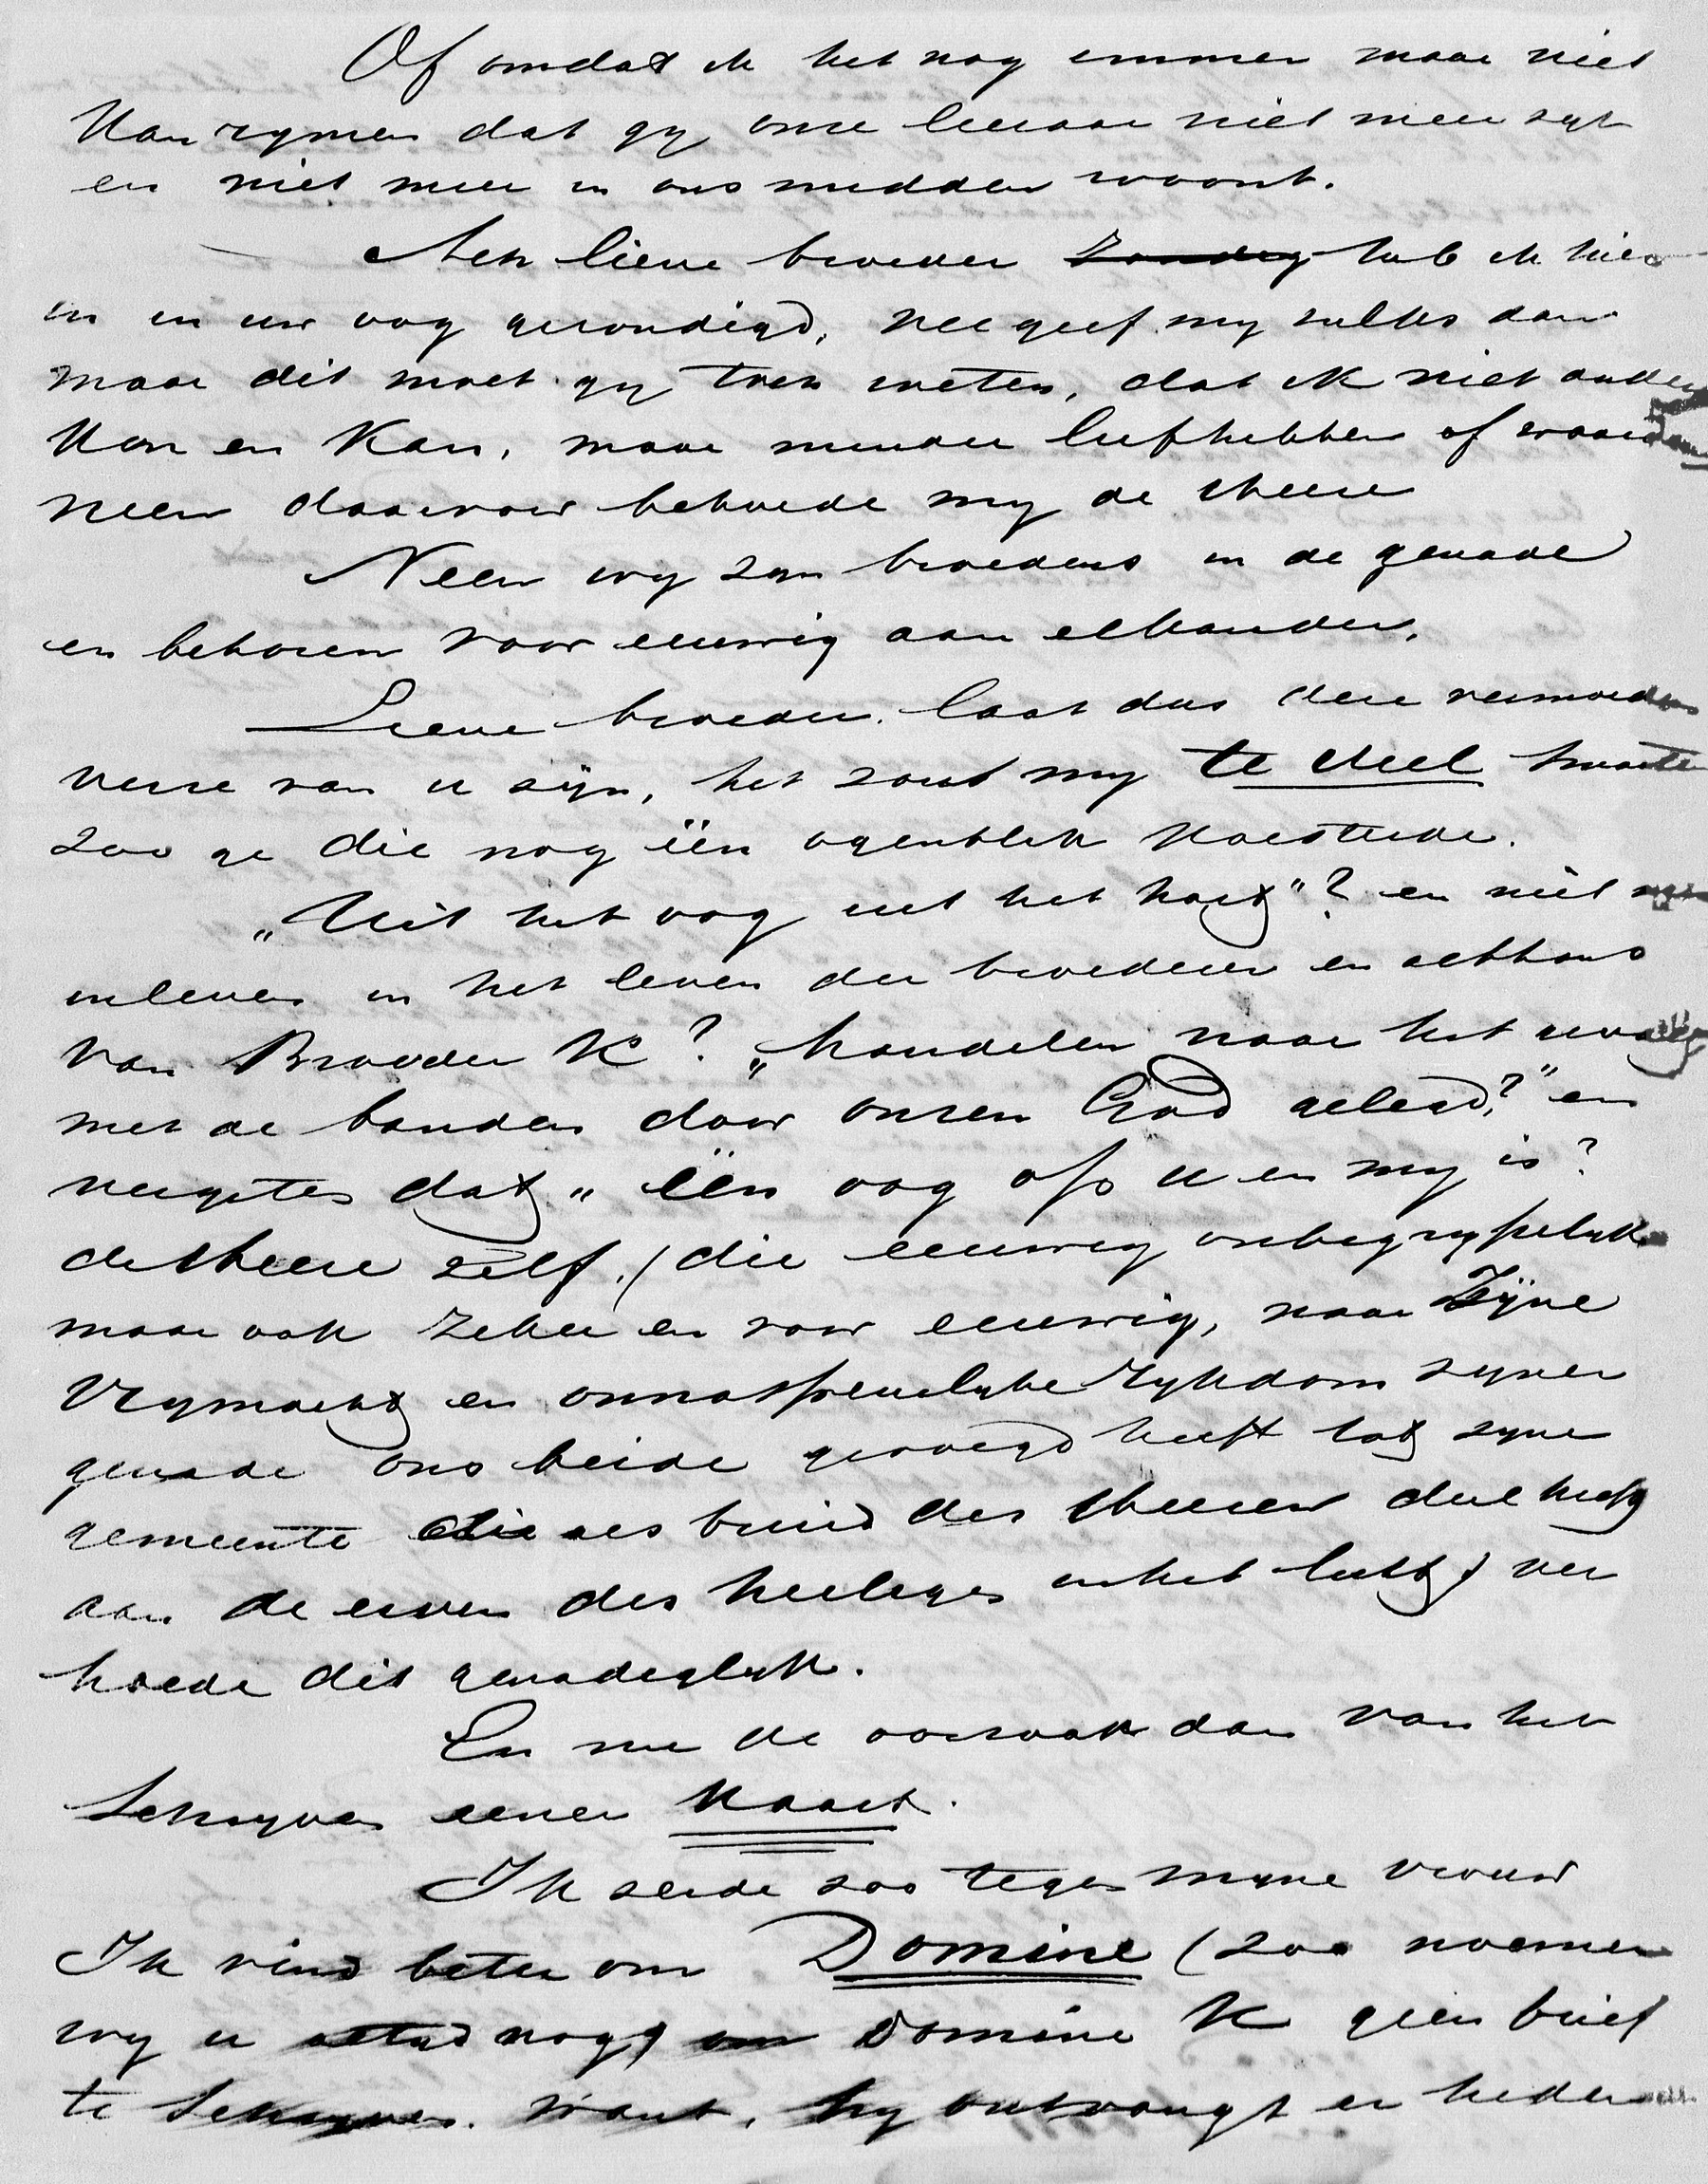 Of omdat ik het nog immer maar niet
kan rymen dat gy onze leeraar niet meer zyt
en niet meer in ons midden woont.
Ach lieve broeder zondig heb ik hier
in in uw oog gezondigd, vergeef my zulks dan
maar dit moet gy toch weten, dat ik niet anders
kon en kan, maar minder liefhebben of
neen daarvoor behoede my de Heere
Neen wy zyn broeders in de genade
en behoren voor eeuwig aan elkander.
Lieve broeder. laat dus deze vermoeden
verre van u zijn, het zoud my te veel smarten
zoo ge die nog één ogenblik koesterde.
„Uit het oog uit het hart"? en niet
inleven in het leven der broederen en althans
van Broeder K? „handelen naar het
met de banden door onzen God gelegd?" en
vergeten dat „ één oog op u en my is?
de Heere zelf. (die eeuwig onbegrypelyk
maar ook zeker en voor eeuwig, naar Zijne
Vrymacht en onnaspeurlyke Rykdom zyner
genade ons beide gevoegd heeft tot zyne
gemeente die als bruid des Heeren deel heeft
aan de erven des heiligen in het licht) ver
hoede dit genadeglyk.
En nu de oorzaak dan van het
Schryven eener kaart.
Ik zeide zoo tegen myne vrouw
Ik vind beter om Domine (zoo noemen
wy u altyd nog) om Domine K geen brief
te Schryven. Want, hy ontvangt er